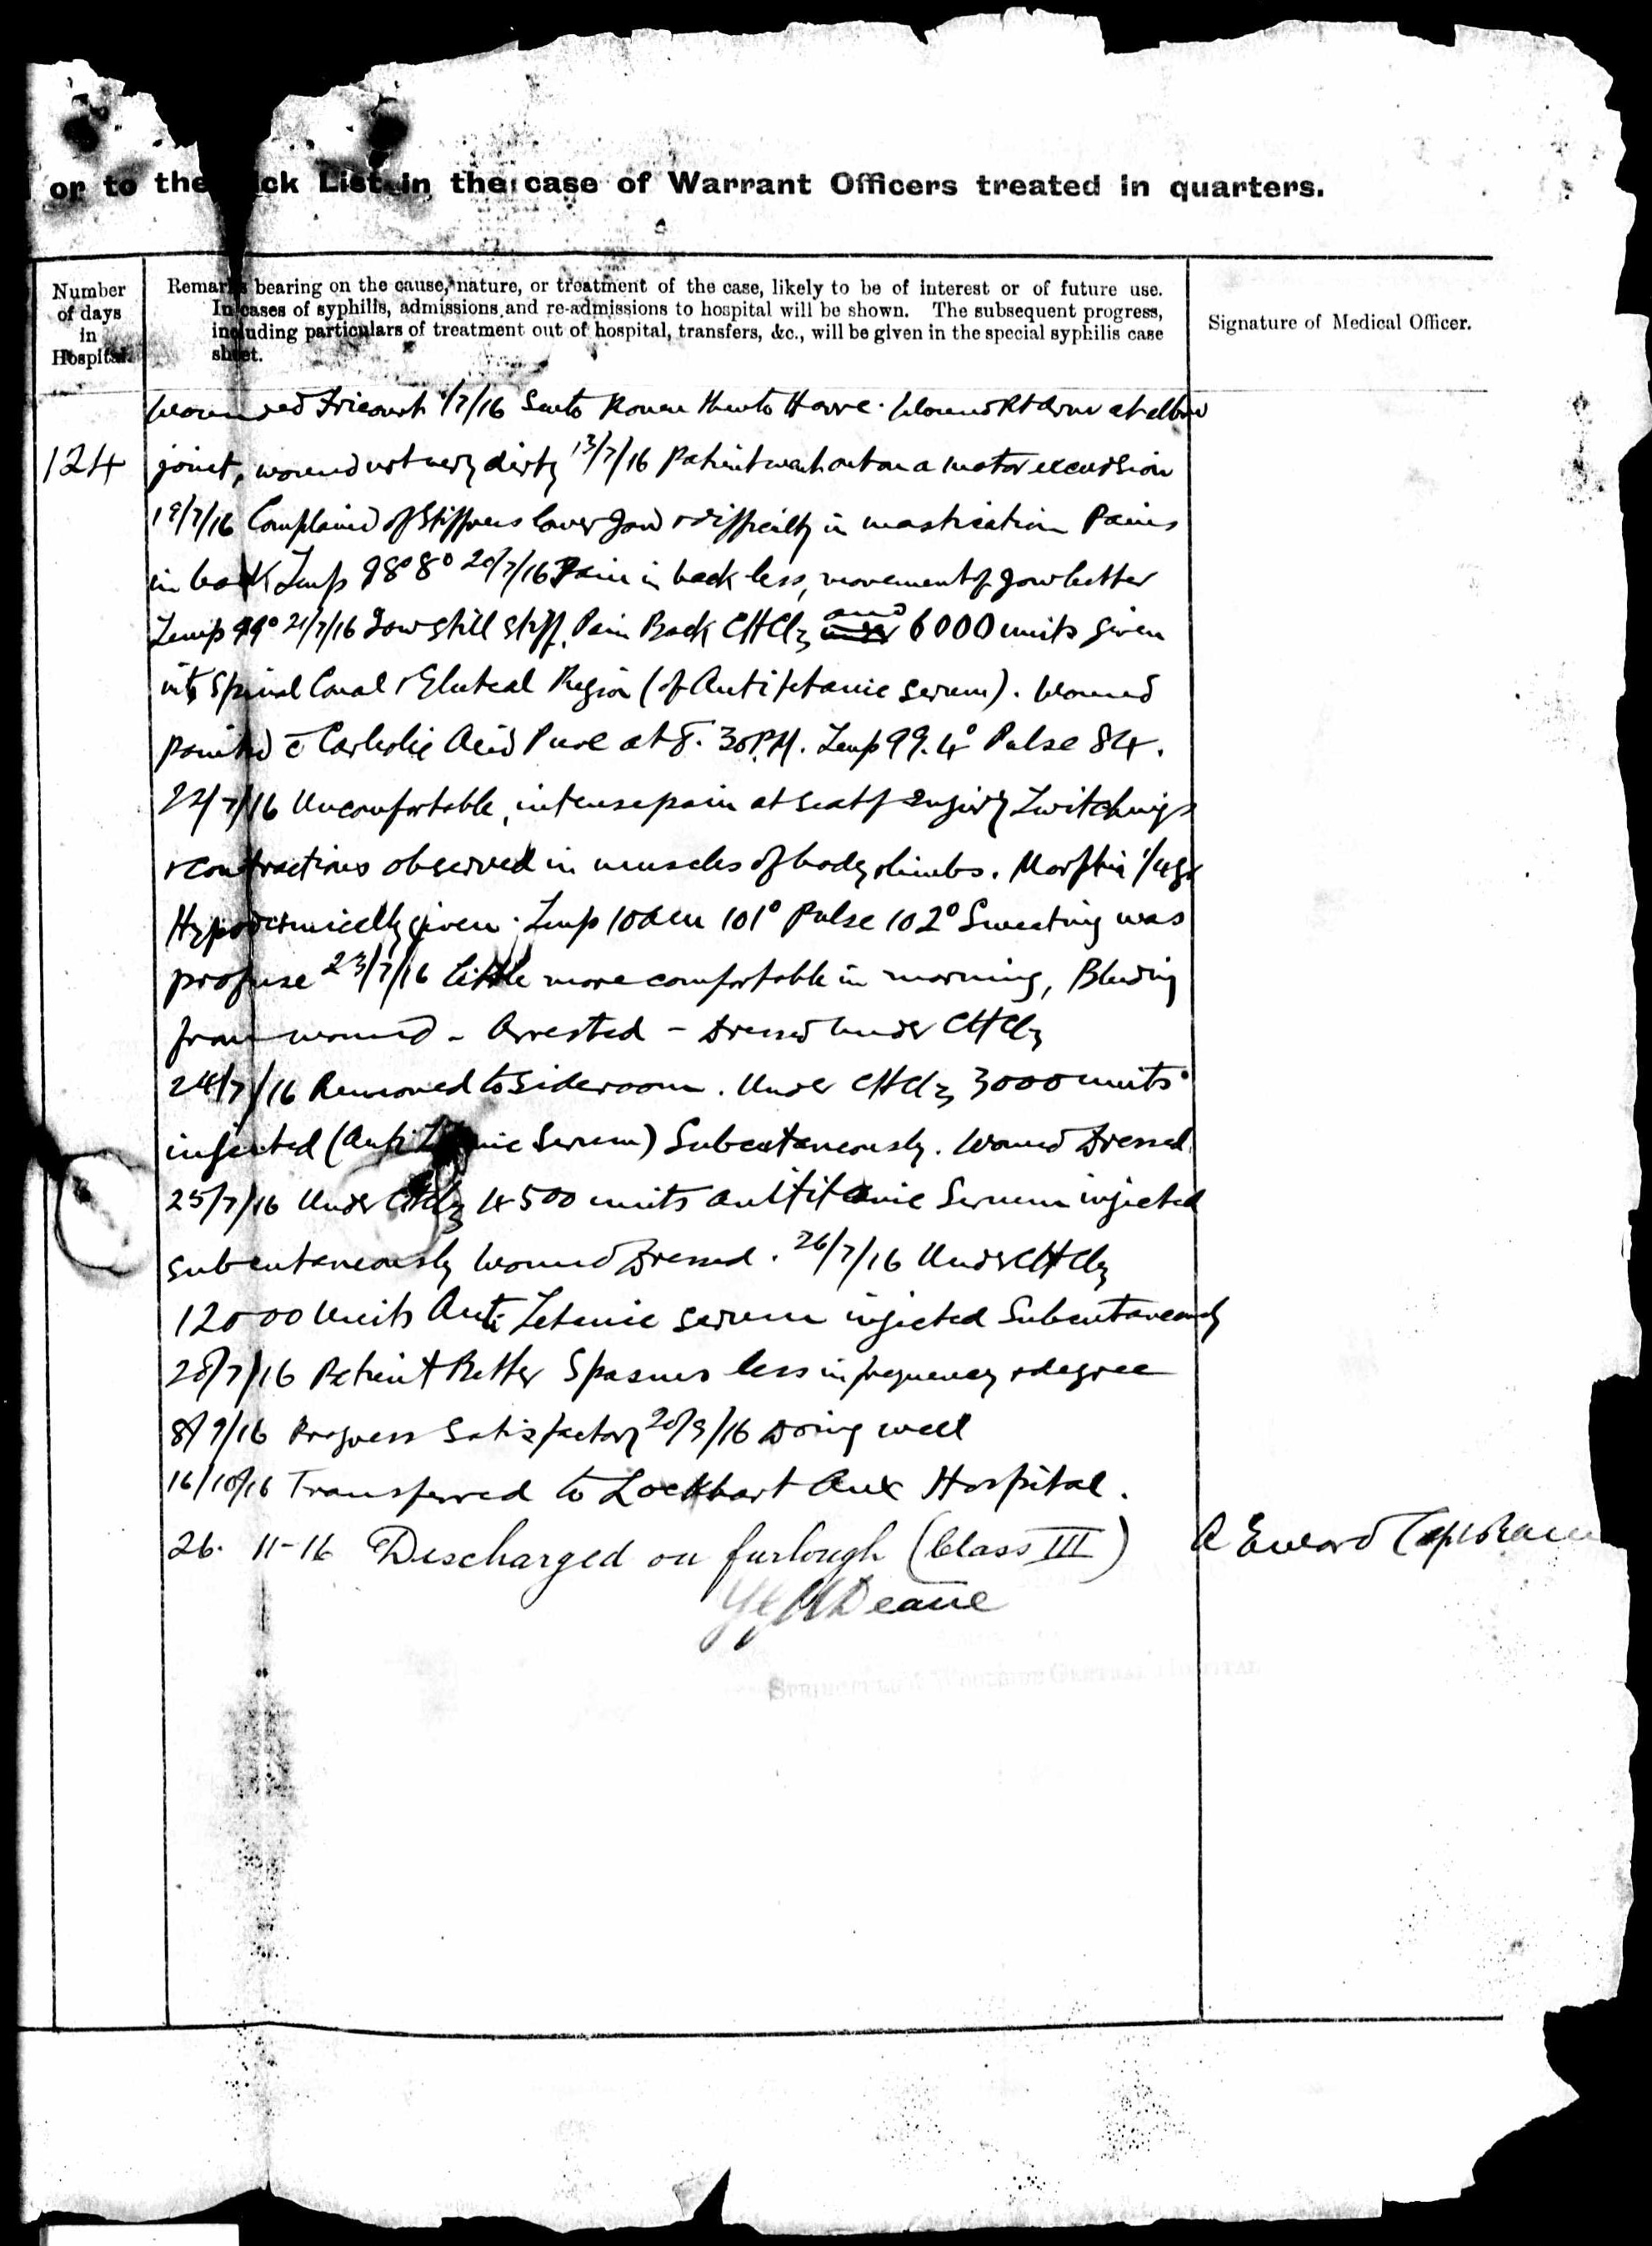 or to the ick List in the case of Warrant Officers treated in quarters.
Number
of days
in
Hospital.
Remarks bearing on the cause, nature, or treatment of the case, likely to be of interest or of future use.
In cases of syphilis, admissions and re-admissions to hospital will be shown. The subsequent progress,
including particulars of treatment out of hospital, transfers, &c., will be given in the special syphilis case
sheet.
Signature of Medical Officer.
Wounded Fricourt 1/7/16 Sent to Rouen then to Havre. Wound Rt Arm at elbow
124
joint, wound not very dirty 13/7/16 Patient went out on a motor excursion
19/7/16 Complained of Stiffness lower Jaw & difficulty in mastication Pains
in back Temp 98° 8° 20/7/16 Pain in back less, movement of Jaw better
Temp 99° 21/7/16 Jaw still stiff. Pain Back CHCl3 and 6000 units given
into Spinal Canal & Gluteal Region (of Antitetanic serum). Wound
painted c̄ Carbolic Acid Pure at 8.30 P.M. Temp 99.4° Pulse 84.
22/7/16 Uncomfortable, intense pain at seat of Injury Twitchings
& contractions observed in muscles of body & limbs. Morphia 1/4 gr
Hypodermically given. Temp 10 am 101° Pulse 102° Sweating was
profuse 23/7/16 little more comfortable in morning, Bleeding
from wound - Arrested - Dressed under CHCl3
24/7/16 Removed to Side room. Under CHCl3 3000 units
injected (Anti Tetanic Serum) Subcutaneously. Wound Dressed.
25/7/16 Under CHCl3 4500 units antitetanic Serum injected
subcutaneously Wound Dressed. 26/7/16 Under CHCl3
12000 Units Anti Tetanic serum injected Subcutaneously
28/7/16 Patient Better Spasms less in frequency & degree
8/9/16 Progress Satisfactory 20/9/16 Doing well
16/10/16 Transferred to Lockhart Aux Hospital.
26. 11-16 Discharged on furlough (Class III)
Deane
Central Hospital